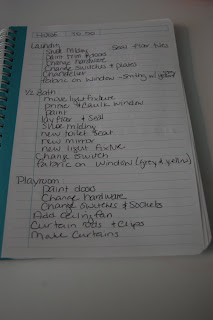 House To Do
Laundry
Shoe molding Seal floor tiles
Paint trim & doors
Change hardware
Change switches & plates
Chandelier
Fabric on window - Smthg w/
1/2 Bath
move light fixture
prime & caulk window
paint
lay floor & seal
shoe molding
new toilet seat
new mirror
new light fixture
change switch
fabric on window (grey & yellow)
Playroom:
paint doors
Change hardware
Change switches & sockets
Add ceiling fan
Curtain rods & clips
Make curtains